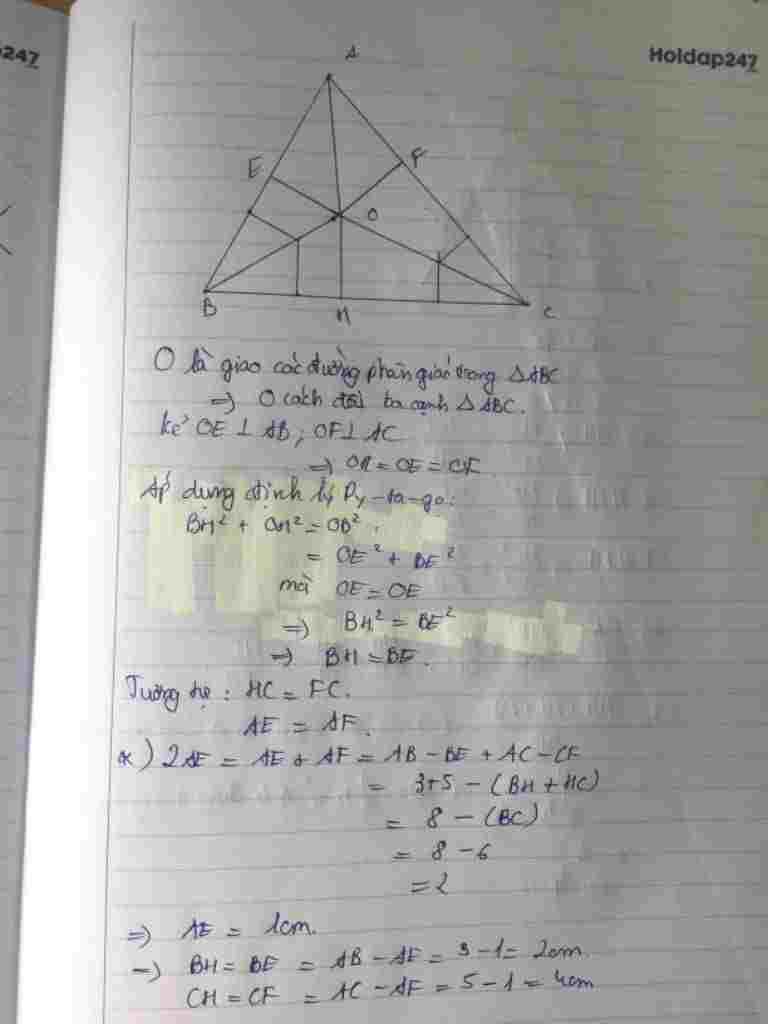 247
Hoidap247
A
E
F
O
B
H
C
O là giao các đường phân giác trong △ABC
=> O cách đều ba cạnh △ABC.
kẻ OE ⊥ AB; OF ⊥ AC
=> OH = OE = OF
Áp dụng định lý Py-ta-go:
BH² + OH² = OB²
= OE² + BE²
mà OE = OE
=> BH² = BE²
=> BH = BE.
Tương tự: HC = FC.
AE = AF.
2AE = AE + AF = AB - BE + AC - CF
= 3+5 - (BH + HC)
= 8 - (BC)
= 8 - 6
= 2
=> AE = 1cm.
=> BH = BE = AB - AE = 3 - 1 = 2cm
CH = CF = AC - AF = 5 - 1 = 4cm